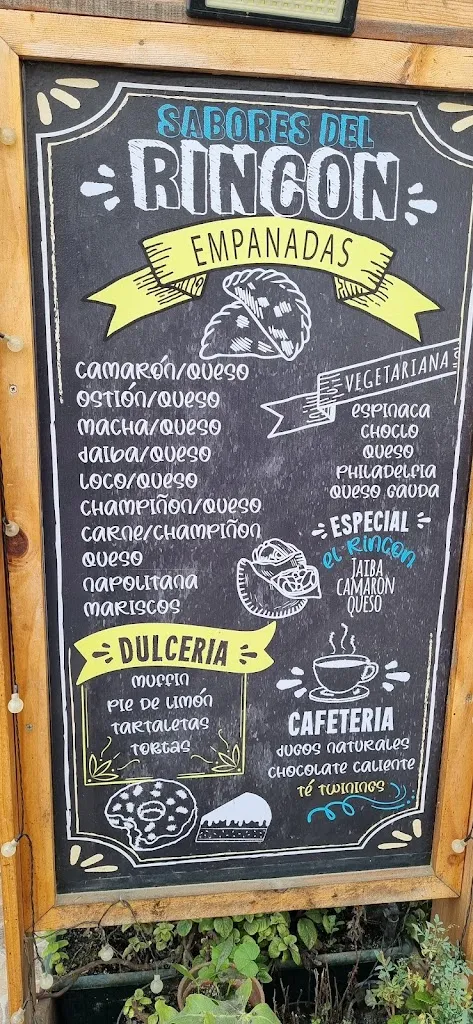 SABORES DEL
RINCON
EMPANADAS
CAMARÓN/QUESO
OSTIÓN/QUESO
MACHA/QUESO
JAIBA/QUESO
LOCO/QUESO
CHAMPIÑON/QUESO
CARNE/CHAMPIÑON
QUESO
NAPOLITANA
MARISCOS
VEGETARIANA
ESPINACA
CHOCLO
QUESO
PHILADELFIA
QUESO GAUDA
ESPECIAL
EL RINCON
JAIBA
CAMARON
QUESO
DULCERIA
MUFFIN
PIE DE LIMÓN
TARTALETAS
TORTAS
CAFETERIA
JUGOS NATURALES
CHOCOLATE CALIENTE
TÉ TWININGS